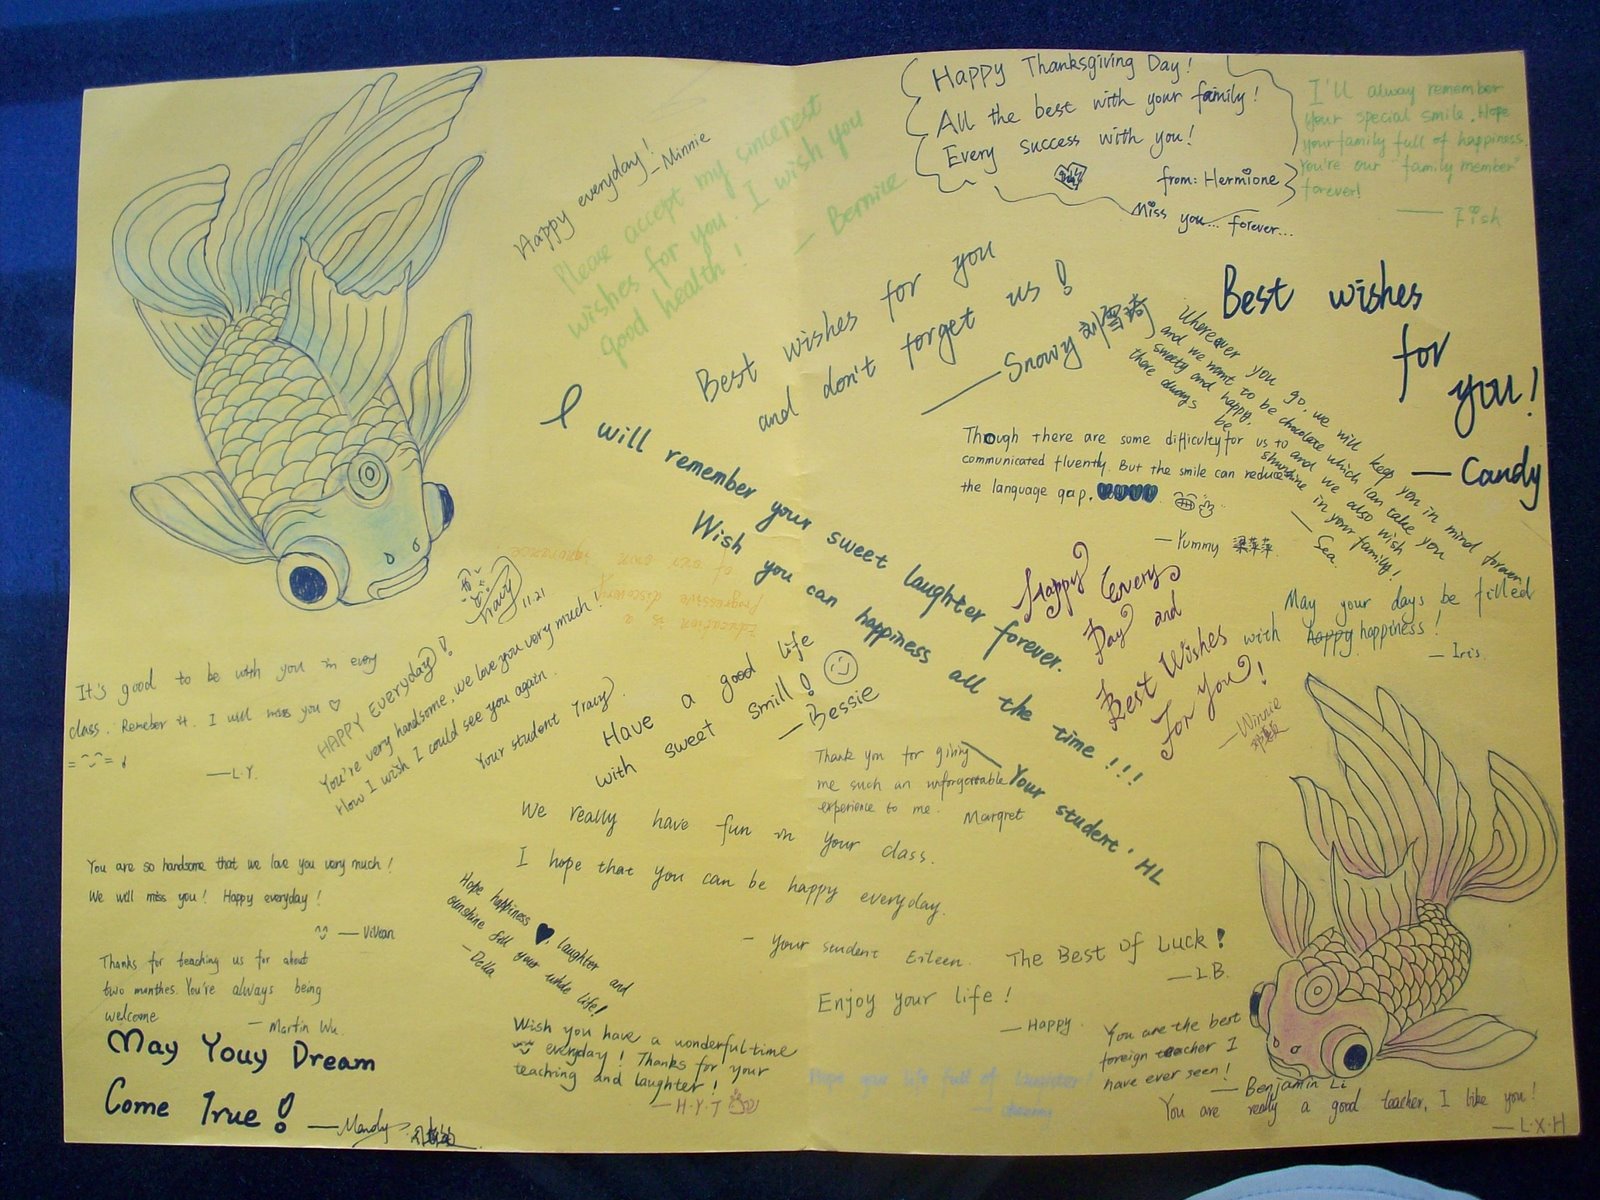 Happy everyday!
—Minnie
Please accept my sincerest
wishes for you. I wish you
good health!
— Bernice
Happy Thanksgiving Day!
All the best with your family!
Every success with you!
from: Hermione
Miss you... forever...
I'll alway remember
your special smile. Hope
your family full of happiness.
You're our "family member"
forever!
— Fish
Best wishes for you
and don't forget us!
— Snowy 刘雪琦
Best wishes
for
you!
— Candy
Wherever you go, we will keep you in mind forever
and we want to be chocolate which can take you
sweety and happy. and we also wish
there always be shinshine in your family!
— Sea.
Though there are some difficulty for us to
communicated fluently. But the smile can reduce
the language gap.
— Yummy 梁萍萍
I will remember your sweet laughter forever.
Wish you can happiness all the time!!!
— Your student, HL
Happy Every
Day and
Best Wishes
For You!
— Winnie
May your days be filled
with happy happiness!
— Iris.
Education is a
progressive discovery
of our own ignorance
Tracy
11.21
HAPPY Everyday!
You're very handsome, we love you very much!
How I wish I could see you again.
Your student Tracy.
It's good to be with you in every
class. Remeber it. I will miss you ♡
—L.Y.
Have a good life
with sweet smill!
— Bessie
Thank you for giving
me such an unforgettable
experience to me. Margret
We really have fun in your class.
I hope that you can be happy everyday.
- your student Eileen.
You are so handsome that we love you very much!
We will miss you! Happy everyday!
— Vivean
Hope happiness ♥, laughter and
sunshine fill your whole life!
— Della
Thanks for teaching us for about
two monthes. You're always being
welcome
— Martin Wu.
May Youy Dream
Come True!
— Mandy
The Best of Luck!
— I.B.
Enjoy your life!
— Happy.
Wish you have a wonderful time
everyday! Thanks for your
teaching and laughter!
— H.Y.T
Hope your life full of laughter!
You are the best
foreign teacher I
have ever seen!
— Benjamin Li
You are really a good teacher, I like you!
— L.X.H